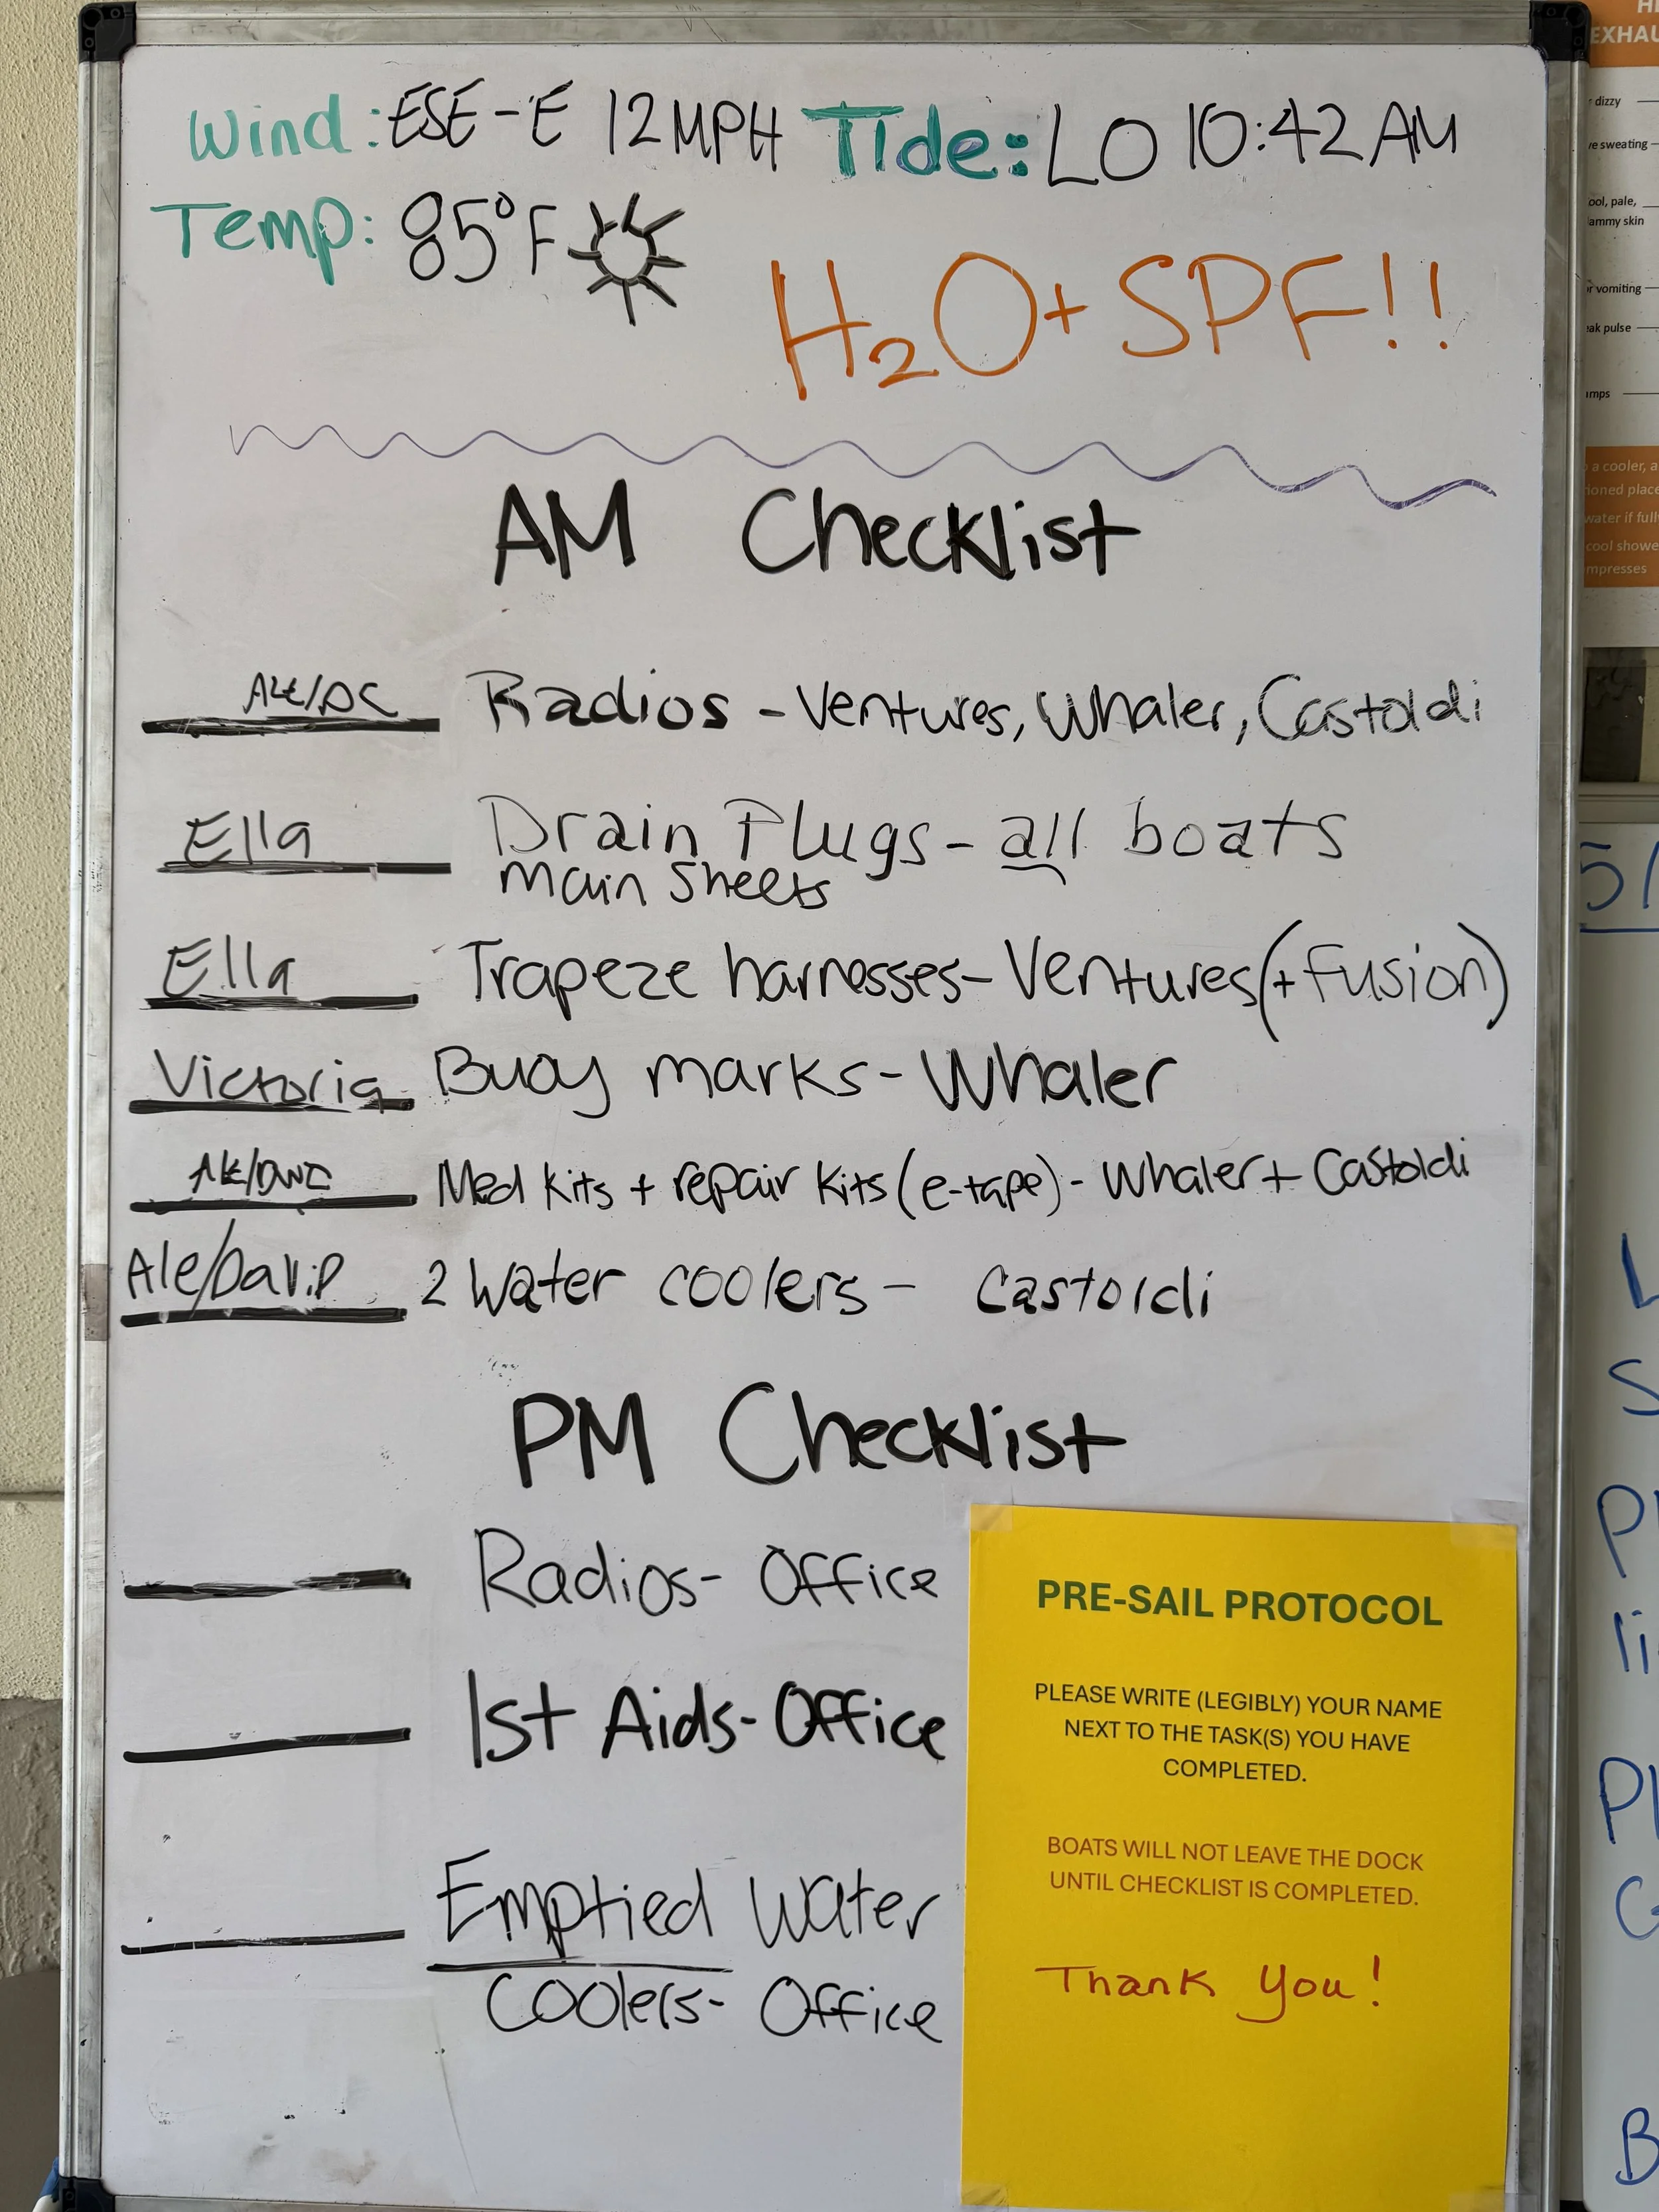 Wind: ESE-E 12MPH Tide: LO 10:42 AM
Temp: 85°F
H2O + SPF!!
AM Checklist
Radios - Ventures, Whaler, Castoldi
Ella Drain Plugs - all boats
Main Sheets
Ella Trapeze harnesses - Ventures (+ Fusion)
Victoria Buoy marks - Whaler
Med kits + repair kits (e-tape) - Whaler + Castoldi
Ale/David 2 Water coolers - Castoldi
PM Checklist
Radios - Office
1st Aids - Office
Emptied Water
Coolers - Office
PRE-SAIL PROTOCOL
PLEASE WRITE (LEGIBLY) YOUR NAME
NEXT TO THE TASK(S) YOU HAVE
COMPLETED.
BOATS WILL NOT LEAVE THE DOCK
UNTIL CHECKLIST IS COMPLETED.
Thank you!
dizzy
sweating
pale,
skin
vomiting
pulse
a cooler,
water if
cool